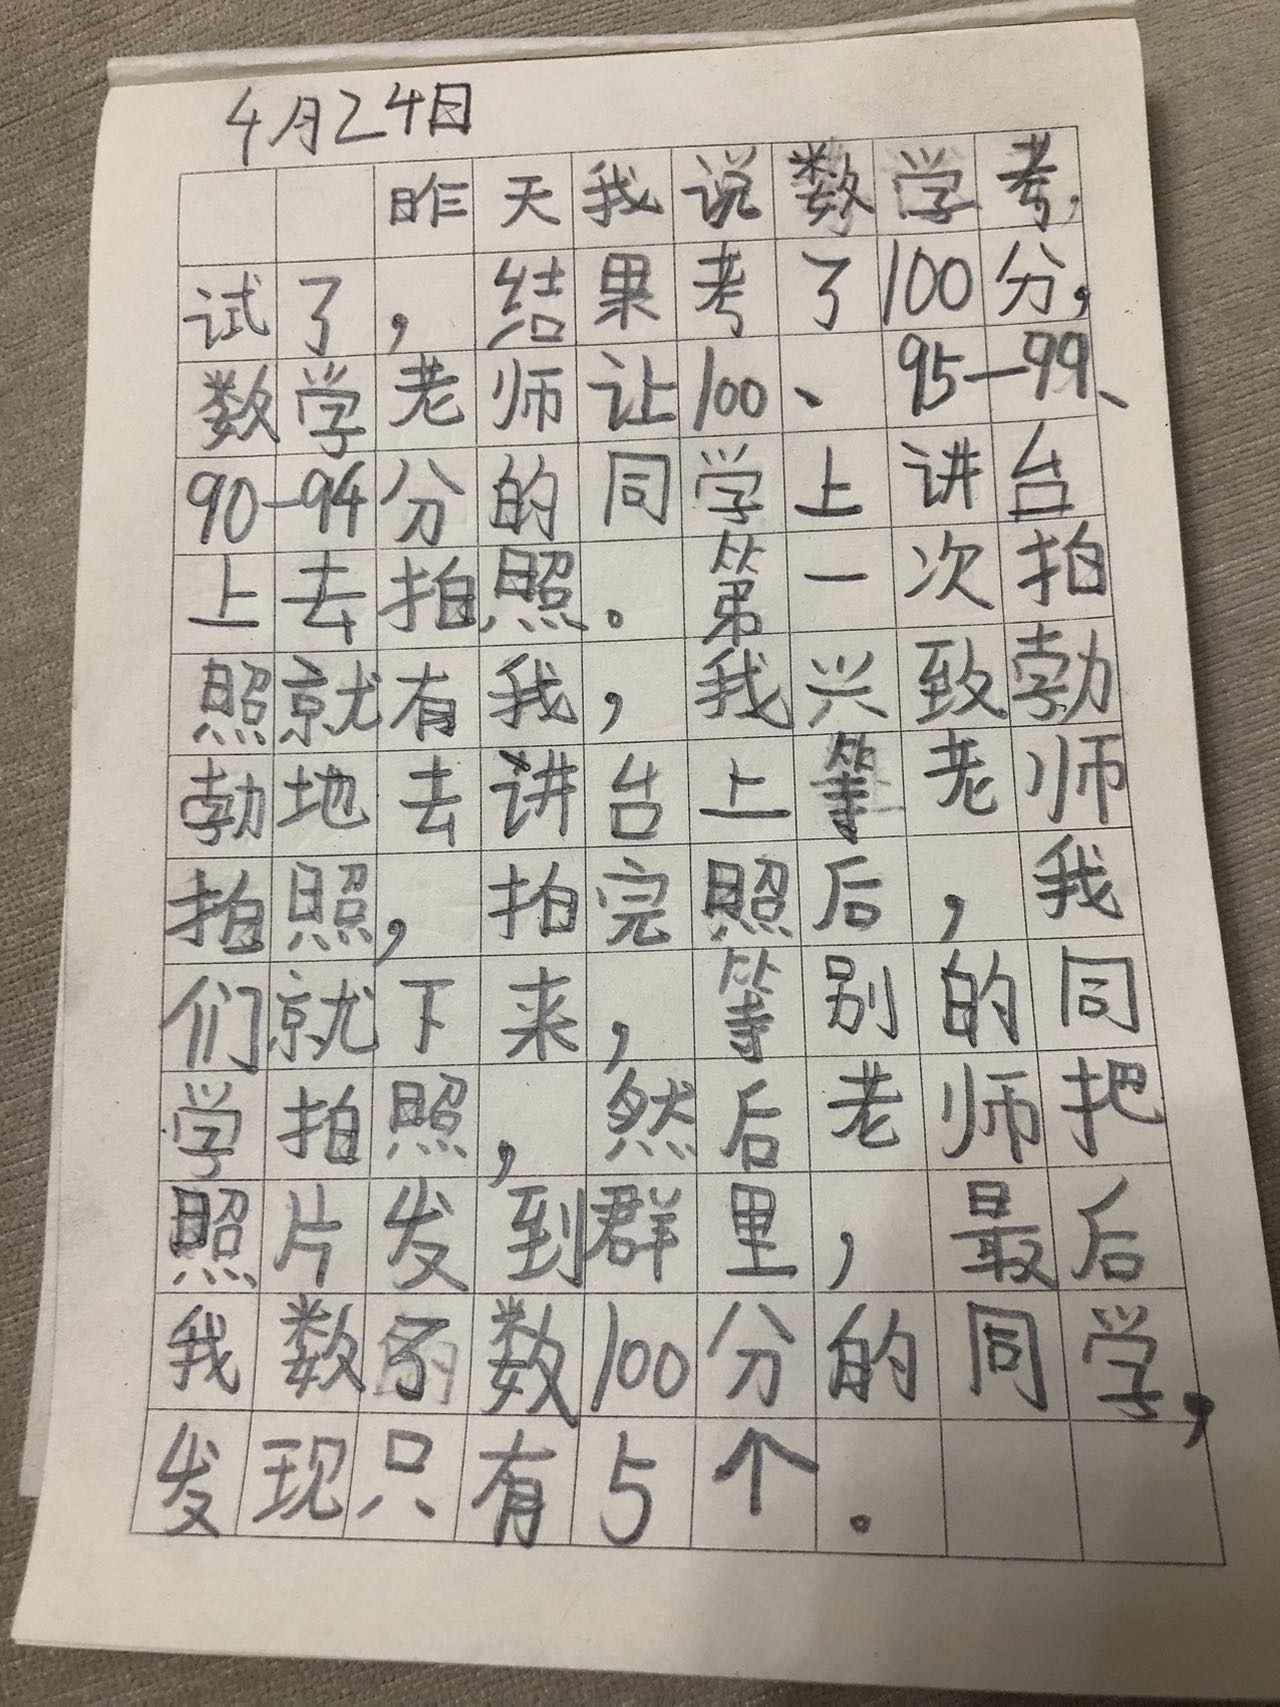 4月24日
昨天我说数学考
试了，结果考了100分，
数学老师让100、95—99、
90—94分的同学上讲台
上去拍照。第一次拍
照就有我，我兴致勃
勃地去讲台上等老师
拍照，拍完照后，我
们就下来，等别的同
学拍照，然后老师把
照片发到群里，最后
我数了数100分的同学，
发现只有5个。